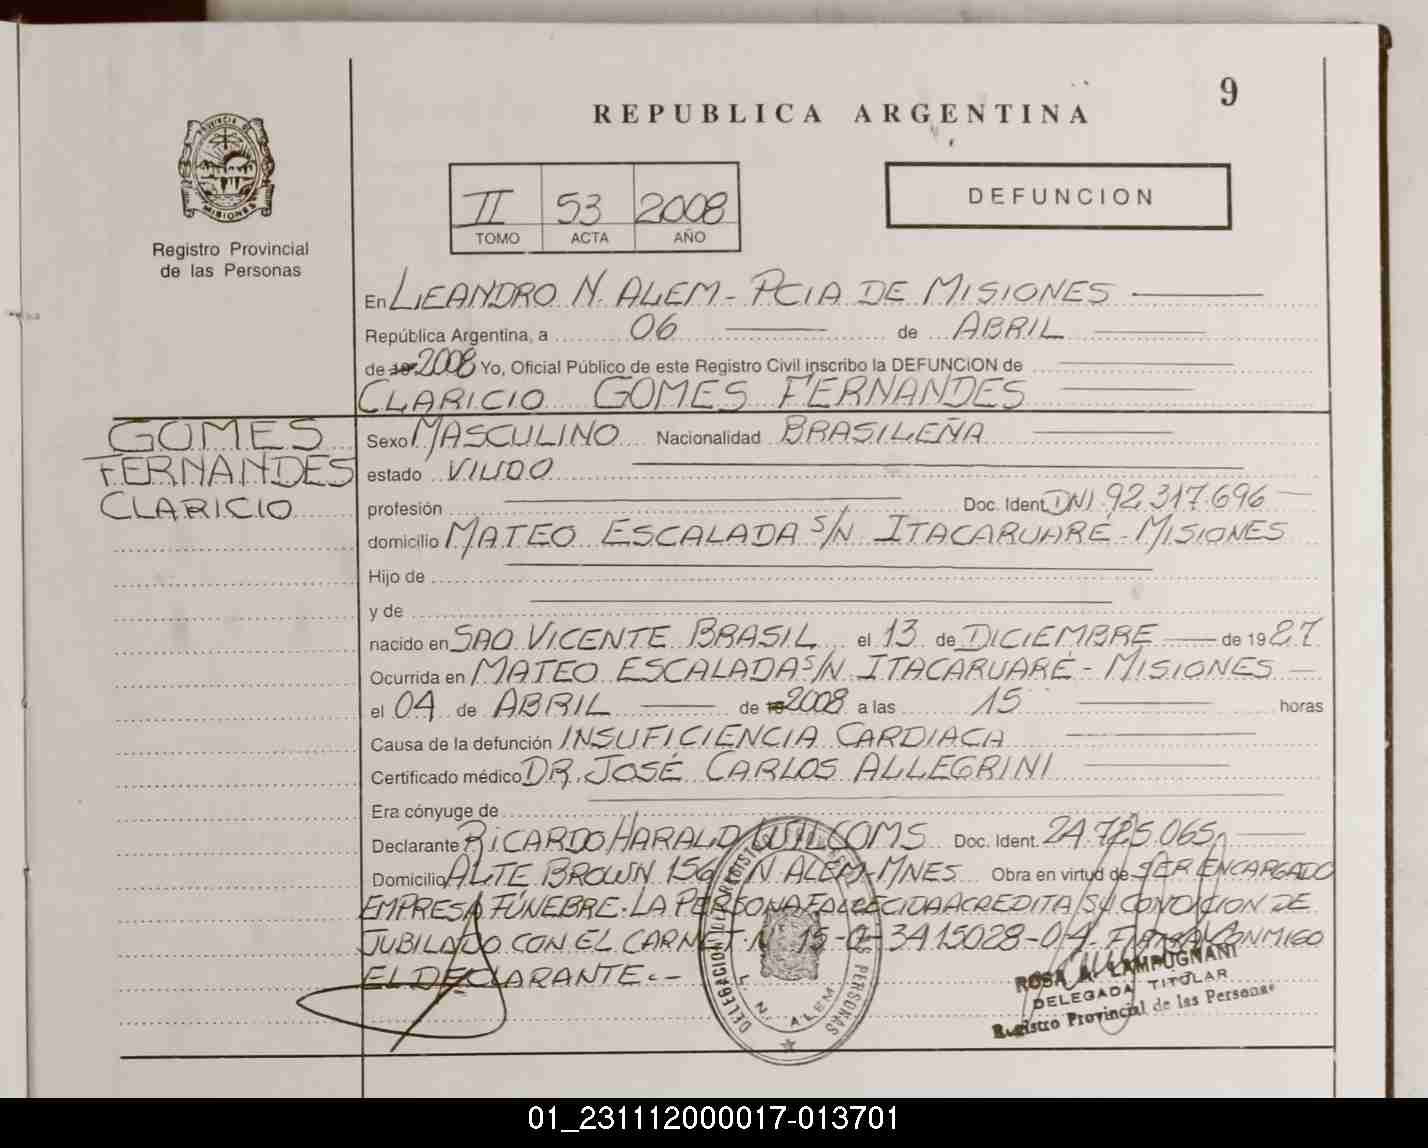 9
REPUBLICA ARGENTINA
PROVINCIA DE
MISIONES
Registro Provincial
de las Personas
II 53 2008
TOMO ACTA AÑO
DEFUNCION
En LEANDRO N. ALEM - PCIA DE MISIONES
República Argentina, a 06 de ABRIL
de 19 2008 Yo, Oficial Público de este Registro Civil inscribo la DEFUNCION de
CLARICIO GOMES FERNANDES
GOMES
FERNANDES
CLARICIO
Sexo MASCULINO Nacionalidad BRASILEÑA
estado VIUDO
profesión Doc. Ident. DNI 92.317.696
domicilio MATEO ESCALADA S/N ITACARUARÉ - MISIONES
Hijo de
y de
nacido en SAO VICENTE BRASIL el 13 de DICIEMBRE de 1927
Ocurrida en MATEO ESCALADA S/N ITACARUARÉ - MISIONES
el 04 de ABRIL de 19 2008 a las 15 horas
Causa de la defunción INSUFICIENCIA CARDIACA
Certificado médico DR. JOSÉ CARLOS ALLEGRINI
Era cónyuge de
Declarante RICARDO HARALD Doc. Ident. 24.725.065
Domicilio ALTE BROWN 156 N ALEM-MNES Obra en virtud de SER ENCARGADO
EMPRESA FÚNEBRE. LA PERSONA FALLECIDA ACREDITA SU CONDICION DE
JUBILADO CON EL CARNET N 15-0-3415028-0/4. FIRMA CONMIGO
EL DECLARANTE.-
DELEGACION DEL REGISTRO DE LAS PERSONAS
L. N. ALEM
ROSA A. LAMPUGNANI
DELEGADA TITULAR
Registro Provincial de las Personas
01_231112000017-013701